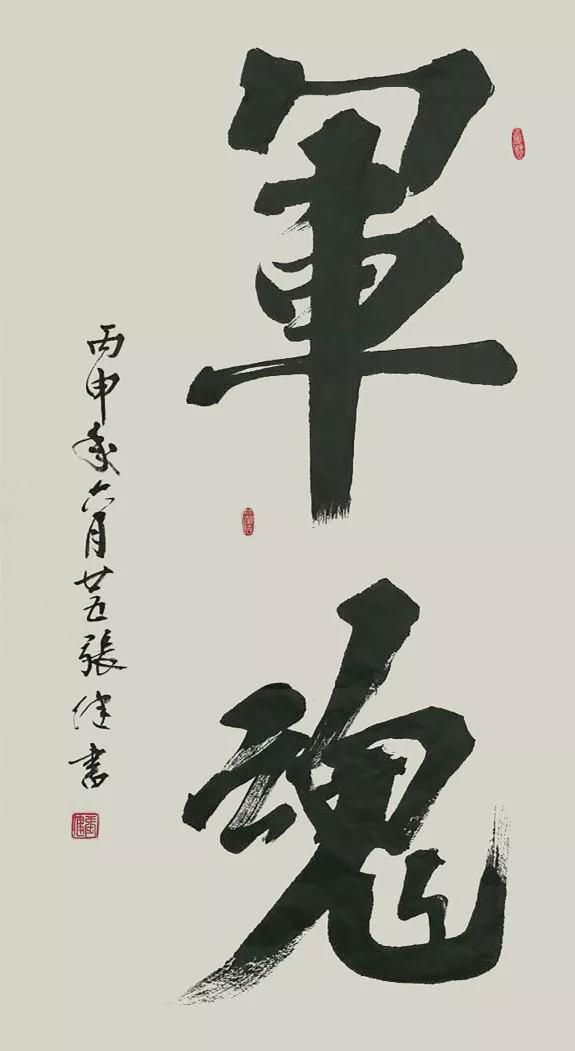 軍魂
丙申年六月廿五張健書